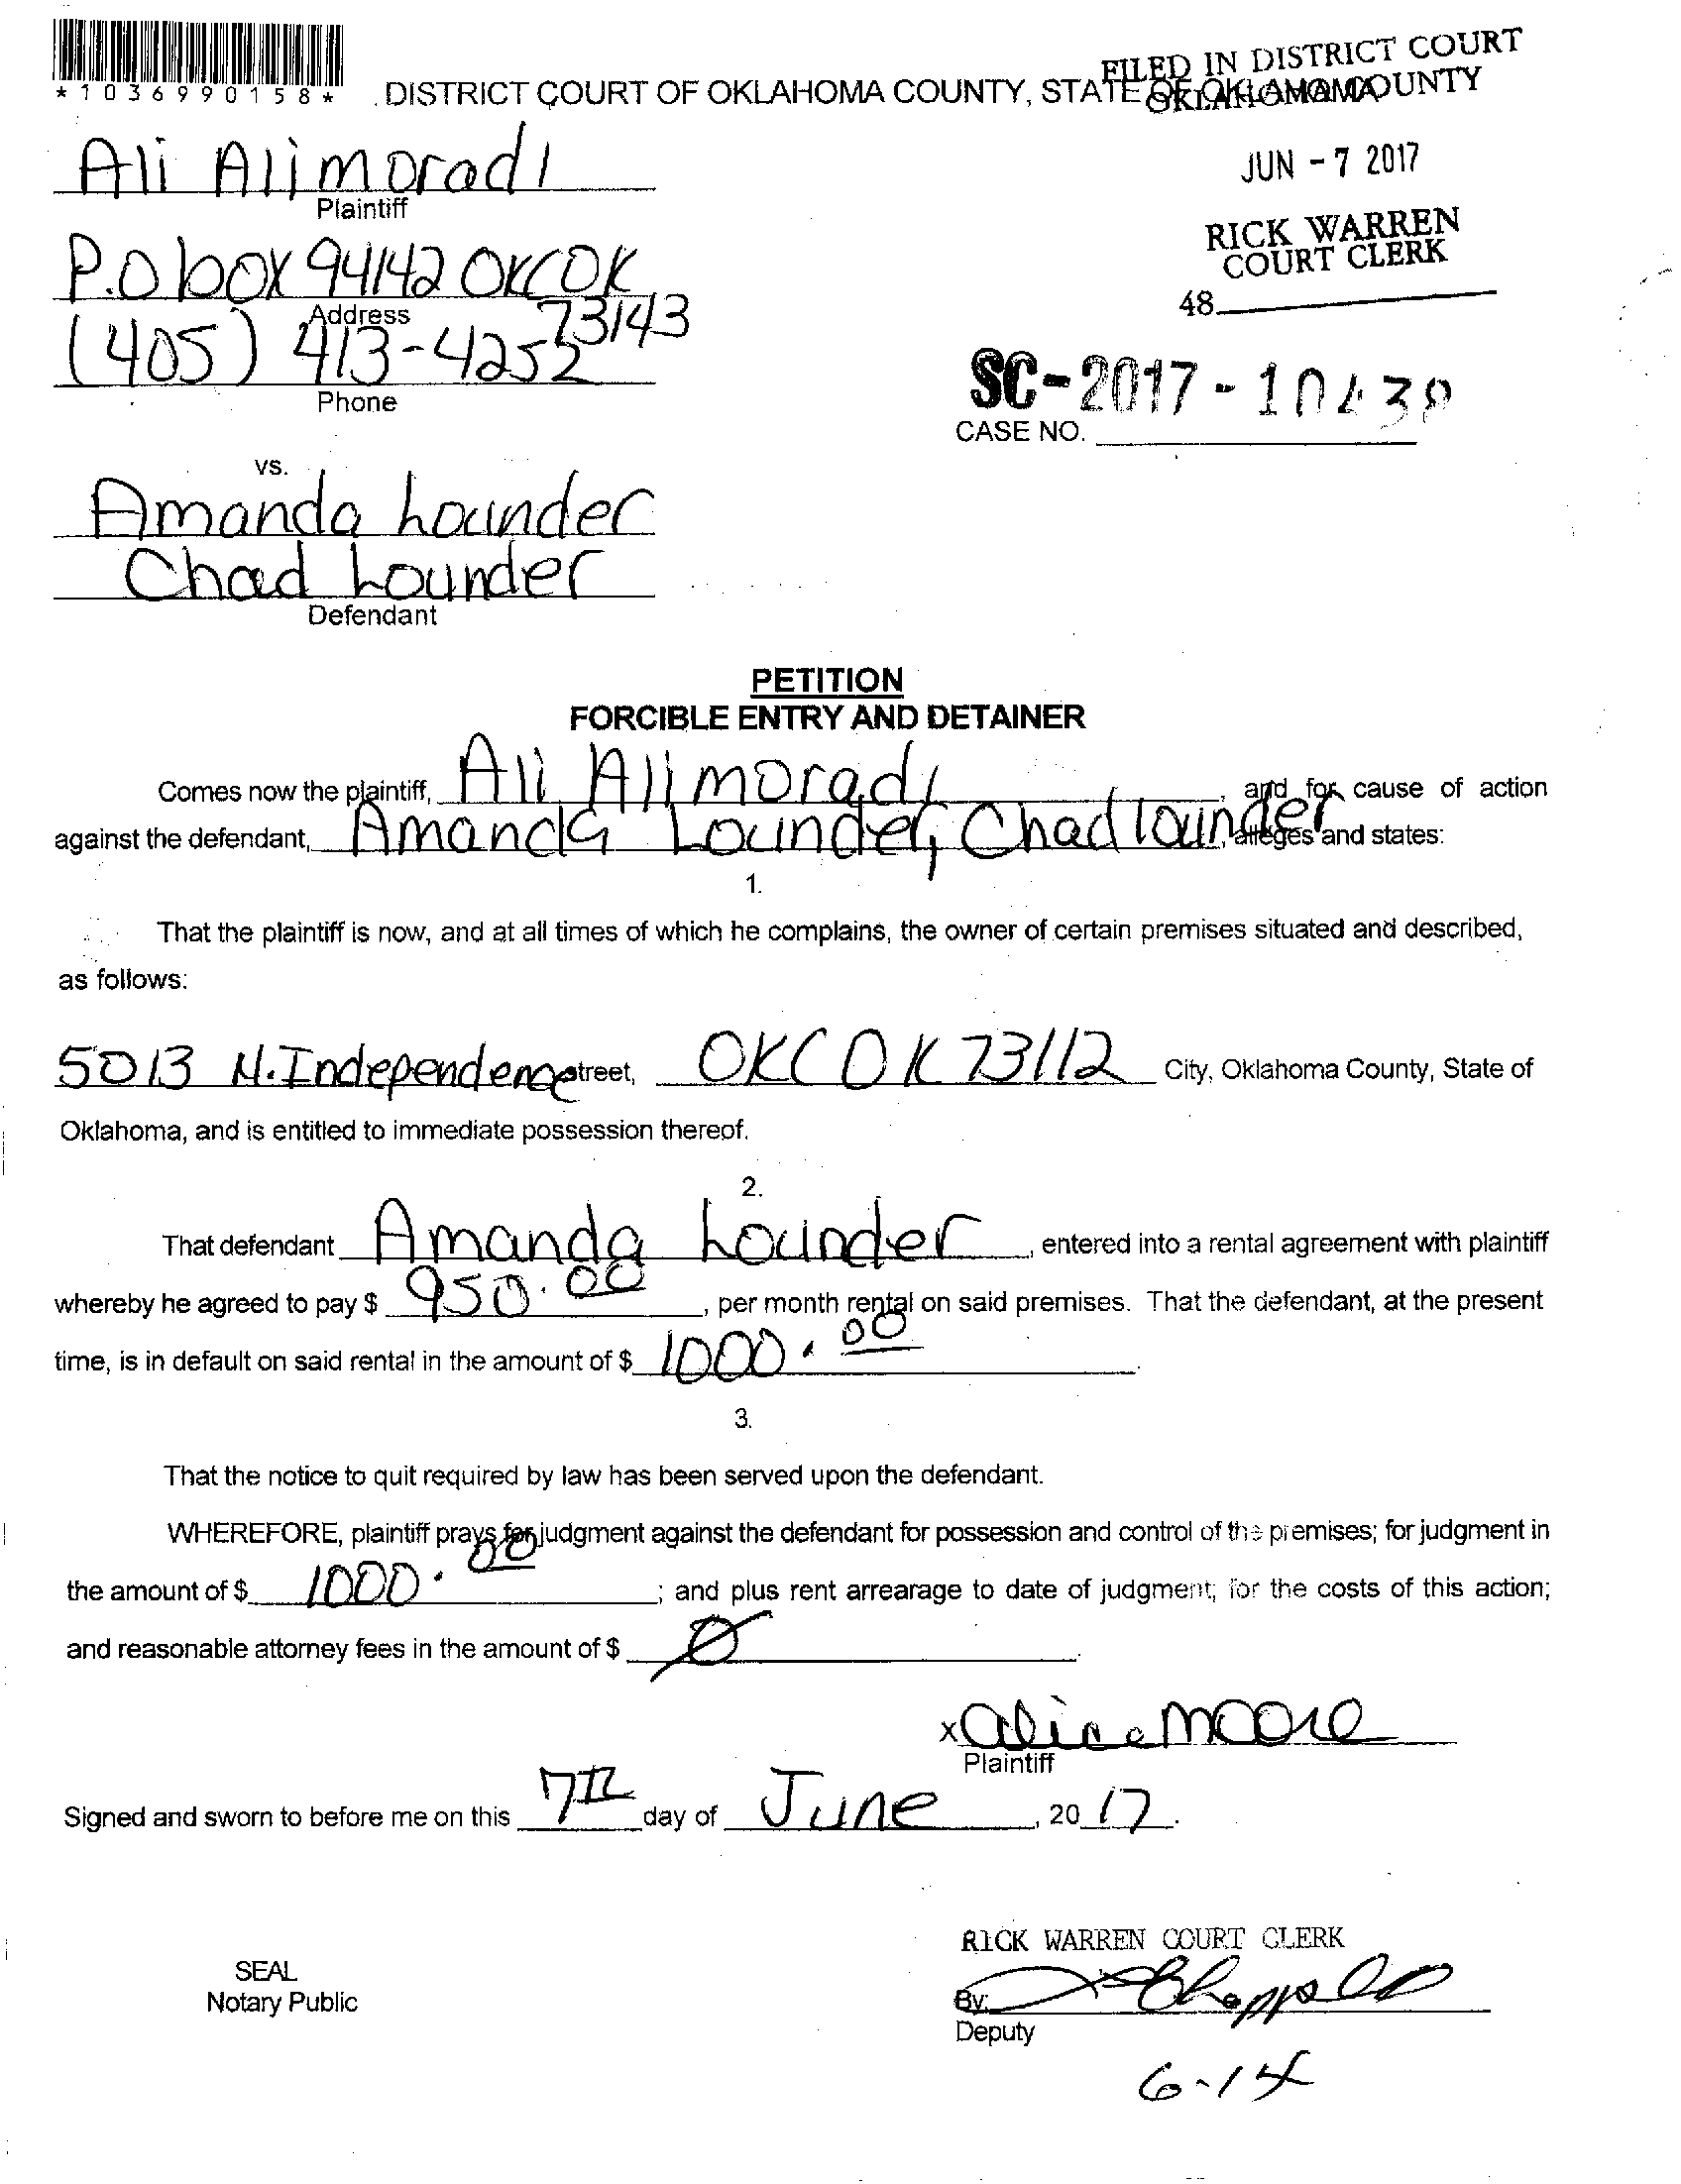 *1036990158*
DISTRICT COURT OF OKLAHOMA COUNTY, STATE OF OKLAHOMA
FILED IN DISTRICT COURT
OKLAHOMA COUNTY
JUN - 7 2017
RICK WARREN
COURT CLERK
48
Ali Alimoradi
Plaintiff
P.O box 94142 OKC OK
73143
Address
(405) 413-4252
Phone
SC-2017-10438
CASE NO.
vs.
Amanda Lounder
Chad Lounder
Defendant
PETITION
FORCIBLE ENTRY AND DETAINER
Comes now the plaintiff, Ali Alimoradi, and for cause of action
against the defendant, Amanda Lounder, Chad Lounder, alleges and states:
1.
That the plaintiff is now, and at all times of which he complains, the owner of certain premises situated and described,
as follows:
5013 N. Independence street, OKC OK 73112 City, Oklahoma County, State of
Oklahoma, and is entitled to immediate possession thereof.
2.
That defendant Amanda Lounder, entered into a rental agreement with plaintiff
whereby he agreed to pay $ 950.00, per month rental on said premises. That the defendant, at the present
time, is in default on said rental in the amount of $ 1000.00.
3.
That the notice to quit required by law has been served upon the defendant.
WHEREFORE, plaintiff prays for judgment against the defendant for possession and control of the premises; for judgment in
the amount of $ 1000.00; and plus rent arrearage to date of judgment; for the costs of this action;
and reasonable attorney fees in the amount of $ 0.
x Alice Moore
Plaintiff
Signed and sworn to before me on this 7th day of June, 20 17.
RICK WARREN COURT CLERK
SEAL
Notary Public
By:
Deputy
6-14